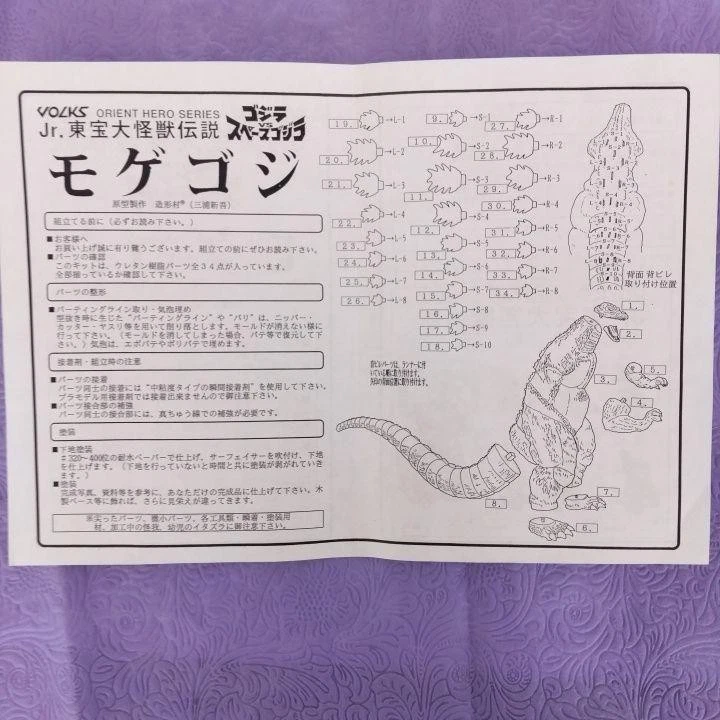 VOLKS ORIENT HERO SERIES
Jr.東宝大怪獣伝説
ゴジラ
VS
スペースゴジラ
モゲゴジ
原型製作 造形村®(三浦新吾)
組立てる前に(必ずお読み下さい。)
■お客様へ
お買い上げ誠に有り難うございます。組立ての前にぜひお読み下さい。
■パーツの確認
このキットは、ウレタン樹脂パーツ全34点が入っています。
全部揃っているか確認して下さい。
パーツの整形
■パーティングライン取り・気泡埋め
型抜き時に生じた"パーティングライン"や"バリ"は、ニッパー・
カッター・ヤスリ等を用いて削り落とします。モールドが消えない様に
行って下さい。(モールドを消してしまった場合、パテ等で復元して下
さい。)気泡は、エポパテやポリパテで埋めます。
接着剤・組立時の注意
■パーツの接着
パーツ同士の接着には"中粘度タイプの瞬間接着剤"を使用して下さい。
プラモデル用接着剤では接着出来ませんので御注意下さい。
■パーツ接合部の補強
パーツ同士の接合部には、真ちゅう線での補強が必要です。
塗装
■下地塗装
#320~400位の耐水ペーパーで仕上げ、サーフェイサーを吹付け、下地
を仕上げます。(下地を行っていないと時間と共に塗装が剥がれていき
ます。)
■塗装
完成写真、資料等を参考に、あなただけの完成品に仕上げて下さい。木
製ベース等に飾れば、さらに見栄えが違ってきます。
※尖ったパーツ、微小パーツ、各工具類・瞬着・塗装用
材、加工中の怪我、幼児のイタズラに御注意下さい。
19. →L-1
20. →L-2
21. →L-3
22. →L-4
23. →L-5
24. →L-6
25. →L-7
26. →L-8
9. →S-1
10. →S-2
11. →S-3
12. →S-4
13. →S-5
14. →S-6
15. →S-7
16. →S-8
17. →S-9
18. →S-10
27. →R-1
28. →R-2
29. →R-3
30. →R-4
31. →R-5
32. →R-6
33. →R-7
34. →R-8
背面 背ビレ
取り付け位置
1.
2.
3.
5.
4.
8.
7.
6.